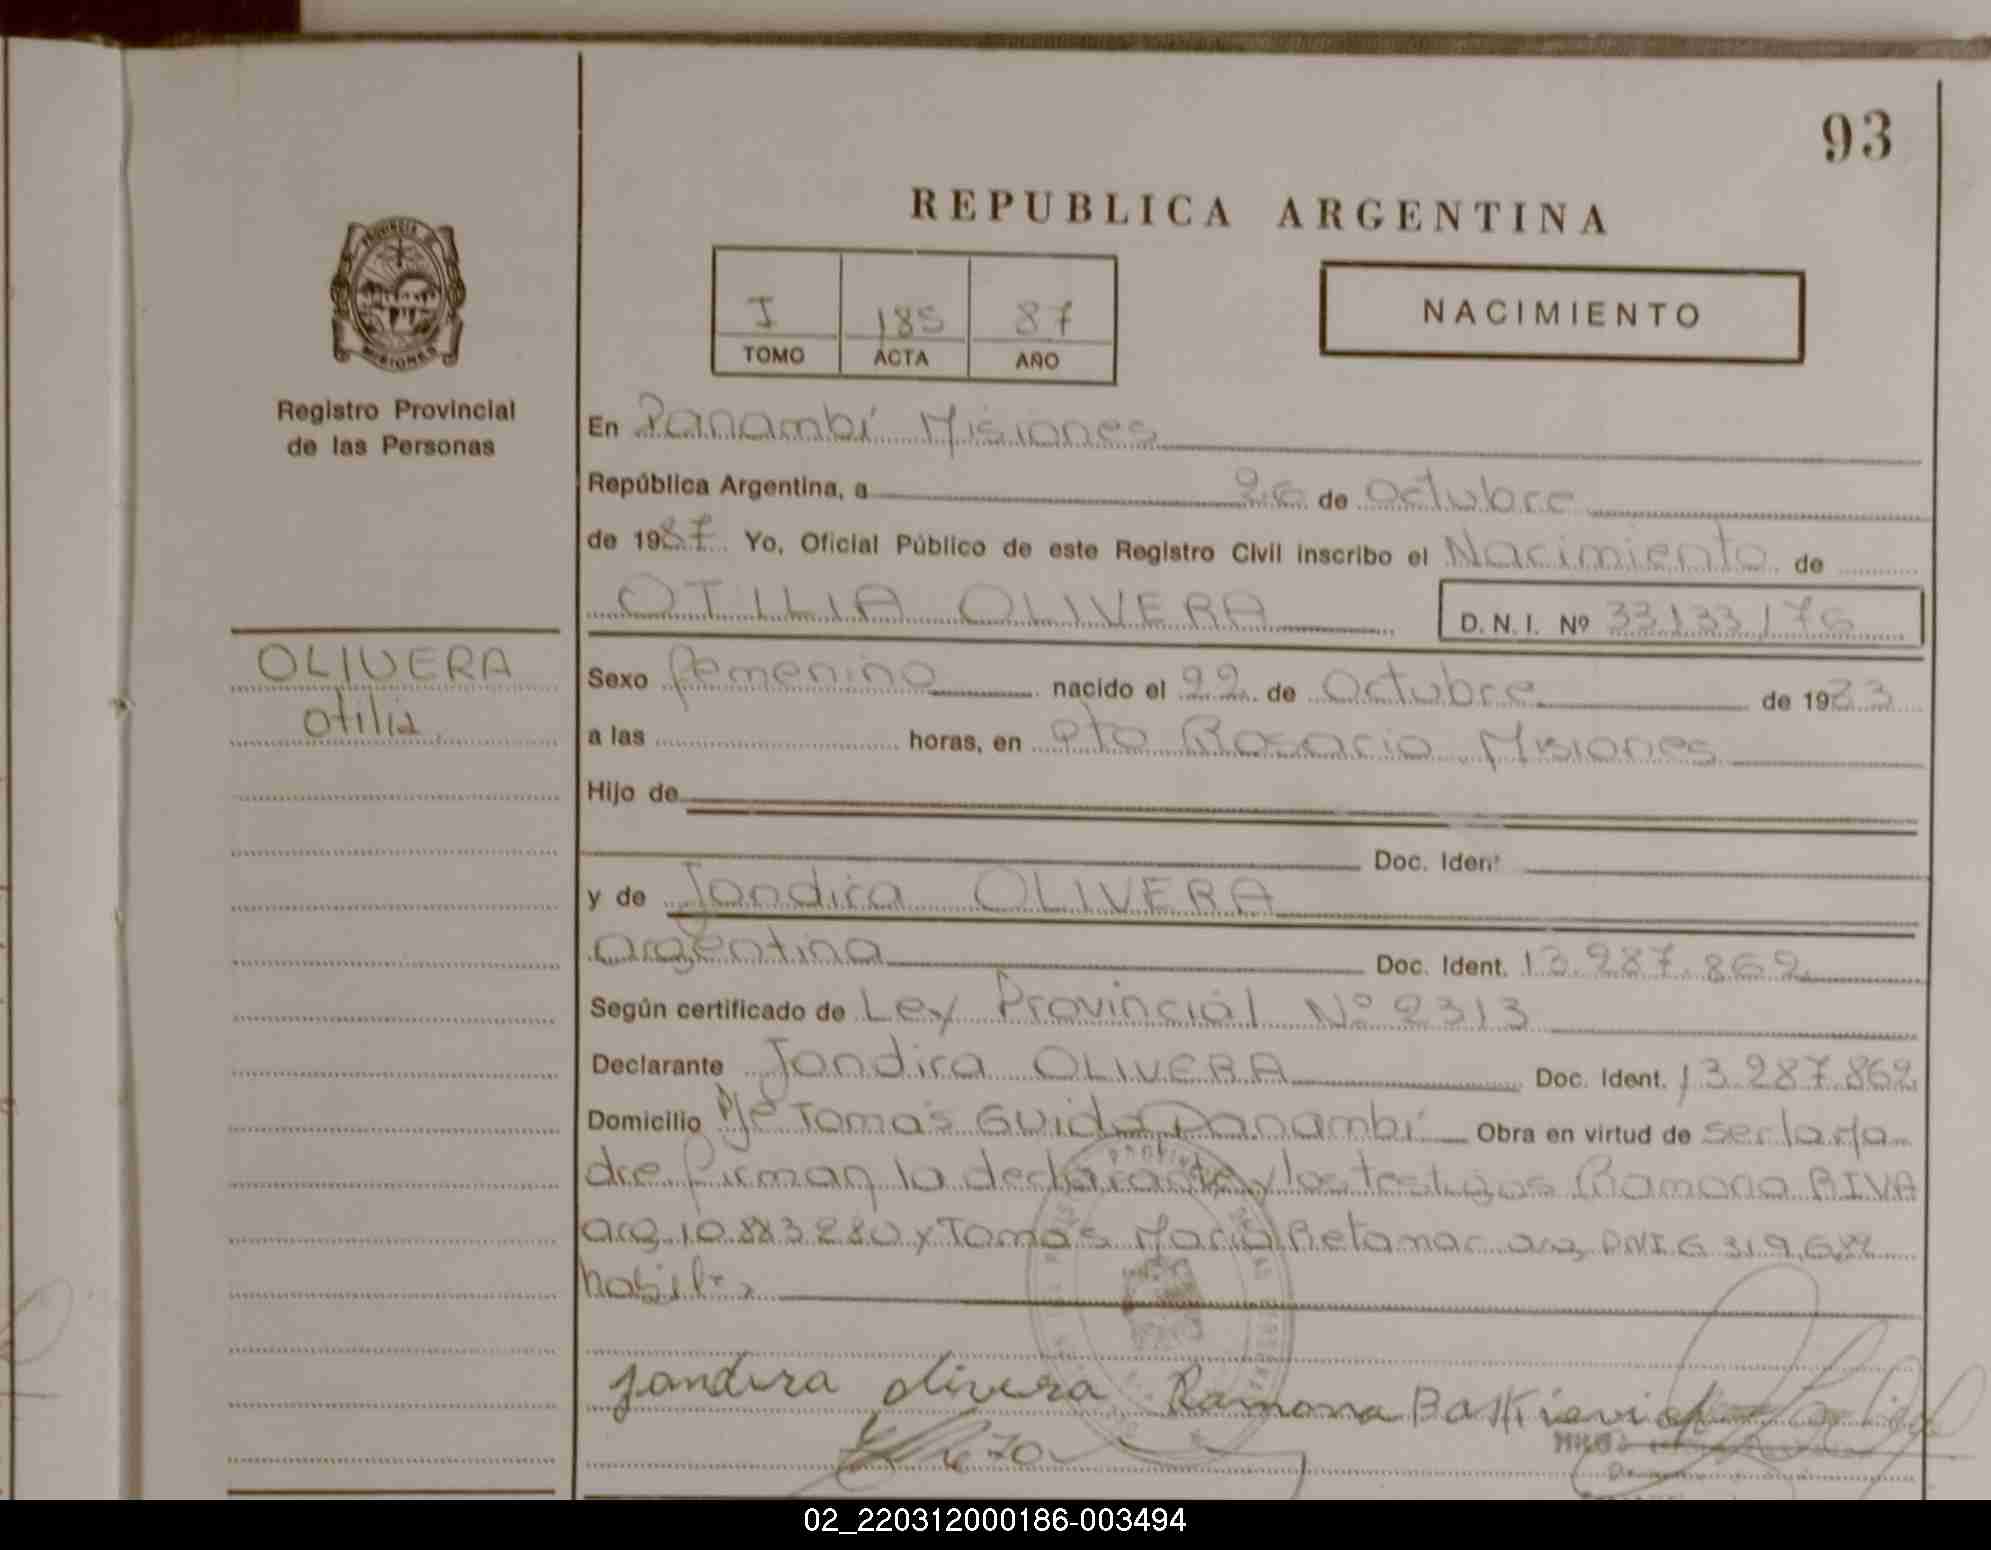 93
REPUBLICA ARGENTINA
I 185 87
TOMO ACTA AÑO
NACIMIENTO
PROVINCIA DE
MISIONES
Registro Provincial
de las Personas
OLIVERA
Otilia
En Panambí Misiones
República Argentina, a 26 de Octubre
de 1987 Yo, Oficial Público de este Registro Civil inscribo el Nacimiento de
OTILIA OLIVERA D.N.I. Nº 33133176
Sexo femenino nacido el 22 de Octubre de 1983
a las horas, en Pto Rosario Misiones
Hijo de
Doc. Ident
y de Jandira OLIVERA
argentina Doc. Ident. 13.287.862
Según certificado de Ley Provincial Nº 2313
Declarante Jandira OLIVERA Doc. Ident. 13.287.862
Domicilio Pje Tomas Guido Panambí Obra en virtud de ser la ma
dre firman la declarante y los testigos Ramona RIVA
arg 10.883.280 y Tomas Retamar arg DNI
habiles
Jandira Olivera Ramona
02_220312000186-003494